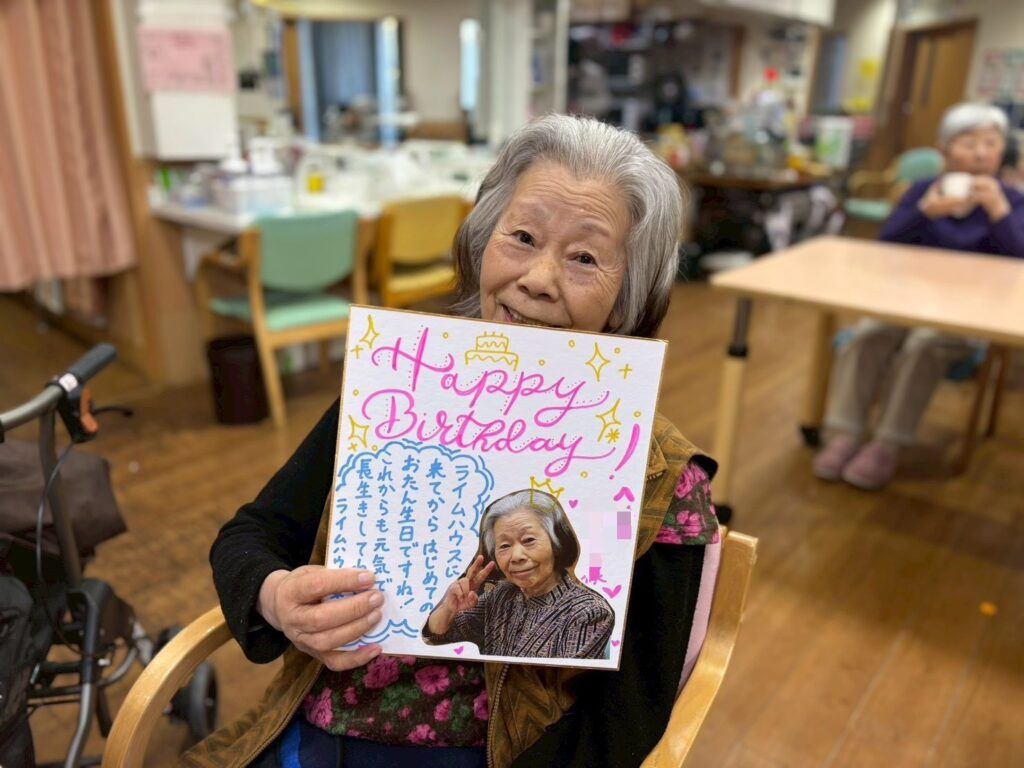 Happy
Birthday!
ライムハウスに
来てから はじめての
おたん生日ですね!
これからも元気で
長生きして
ライムハウ